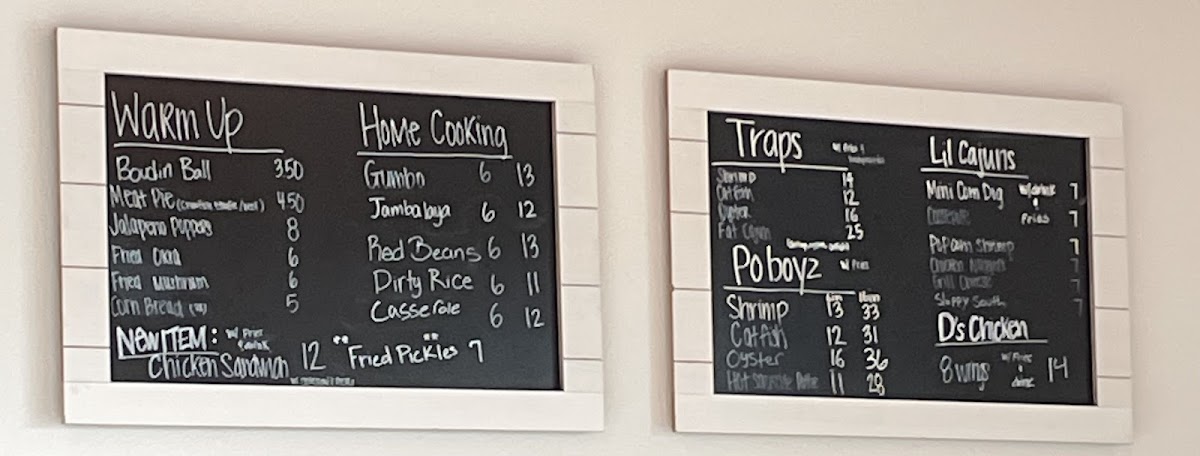 Warm Up
Boudin Ball 3.50
Meat Pie 4.50
Jalapeno Poppers 8
Fried Okra 6
Fried Mushroom 6
Corn Bread 5
New Item: w/ Fries & drink
Chicken Sandwich 12
**Fried Pickles** 7
Home Cooking
Gumbo 6 13
Jambalaya 6 12
Red Beans 6 13
Dirty Rice 6 11
Casserole 6 12
Traps w/ Fries &
Shrimp 14
Catfish 12
Oyster 16
Fat Cajun 25
Po boyz w/ Fries
Shrimp 13 33
Catfish 12 31
Oyster 16 36
Hot Sausage 11 28
Lil Cajuns
Mini Corn Dog w/ drink & Fries 7
7
Popcorn Shrimp 7
Chicken Nuggets 7
Grill Cheese 7
Sloppy South 7
D's Chicken
8 wings w/ Fries & drink 14